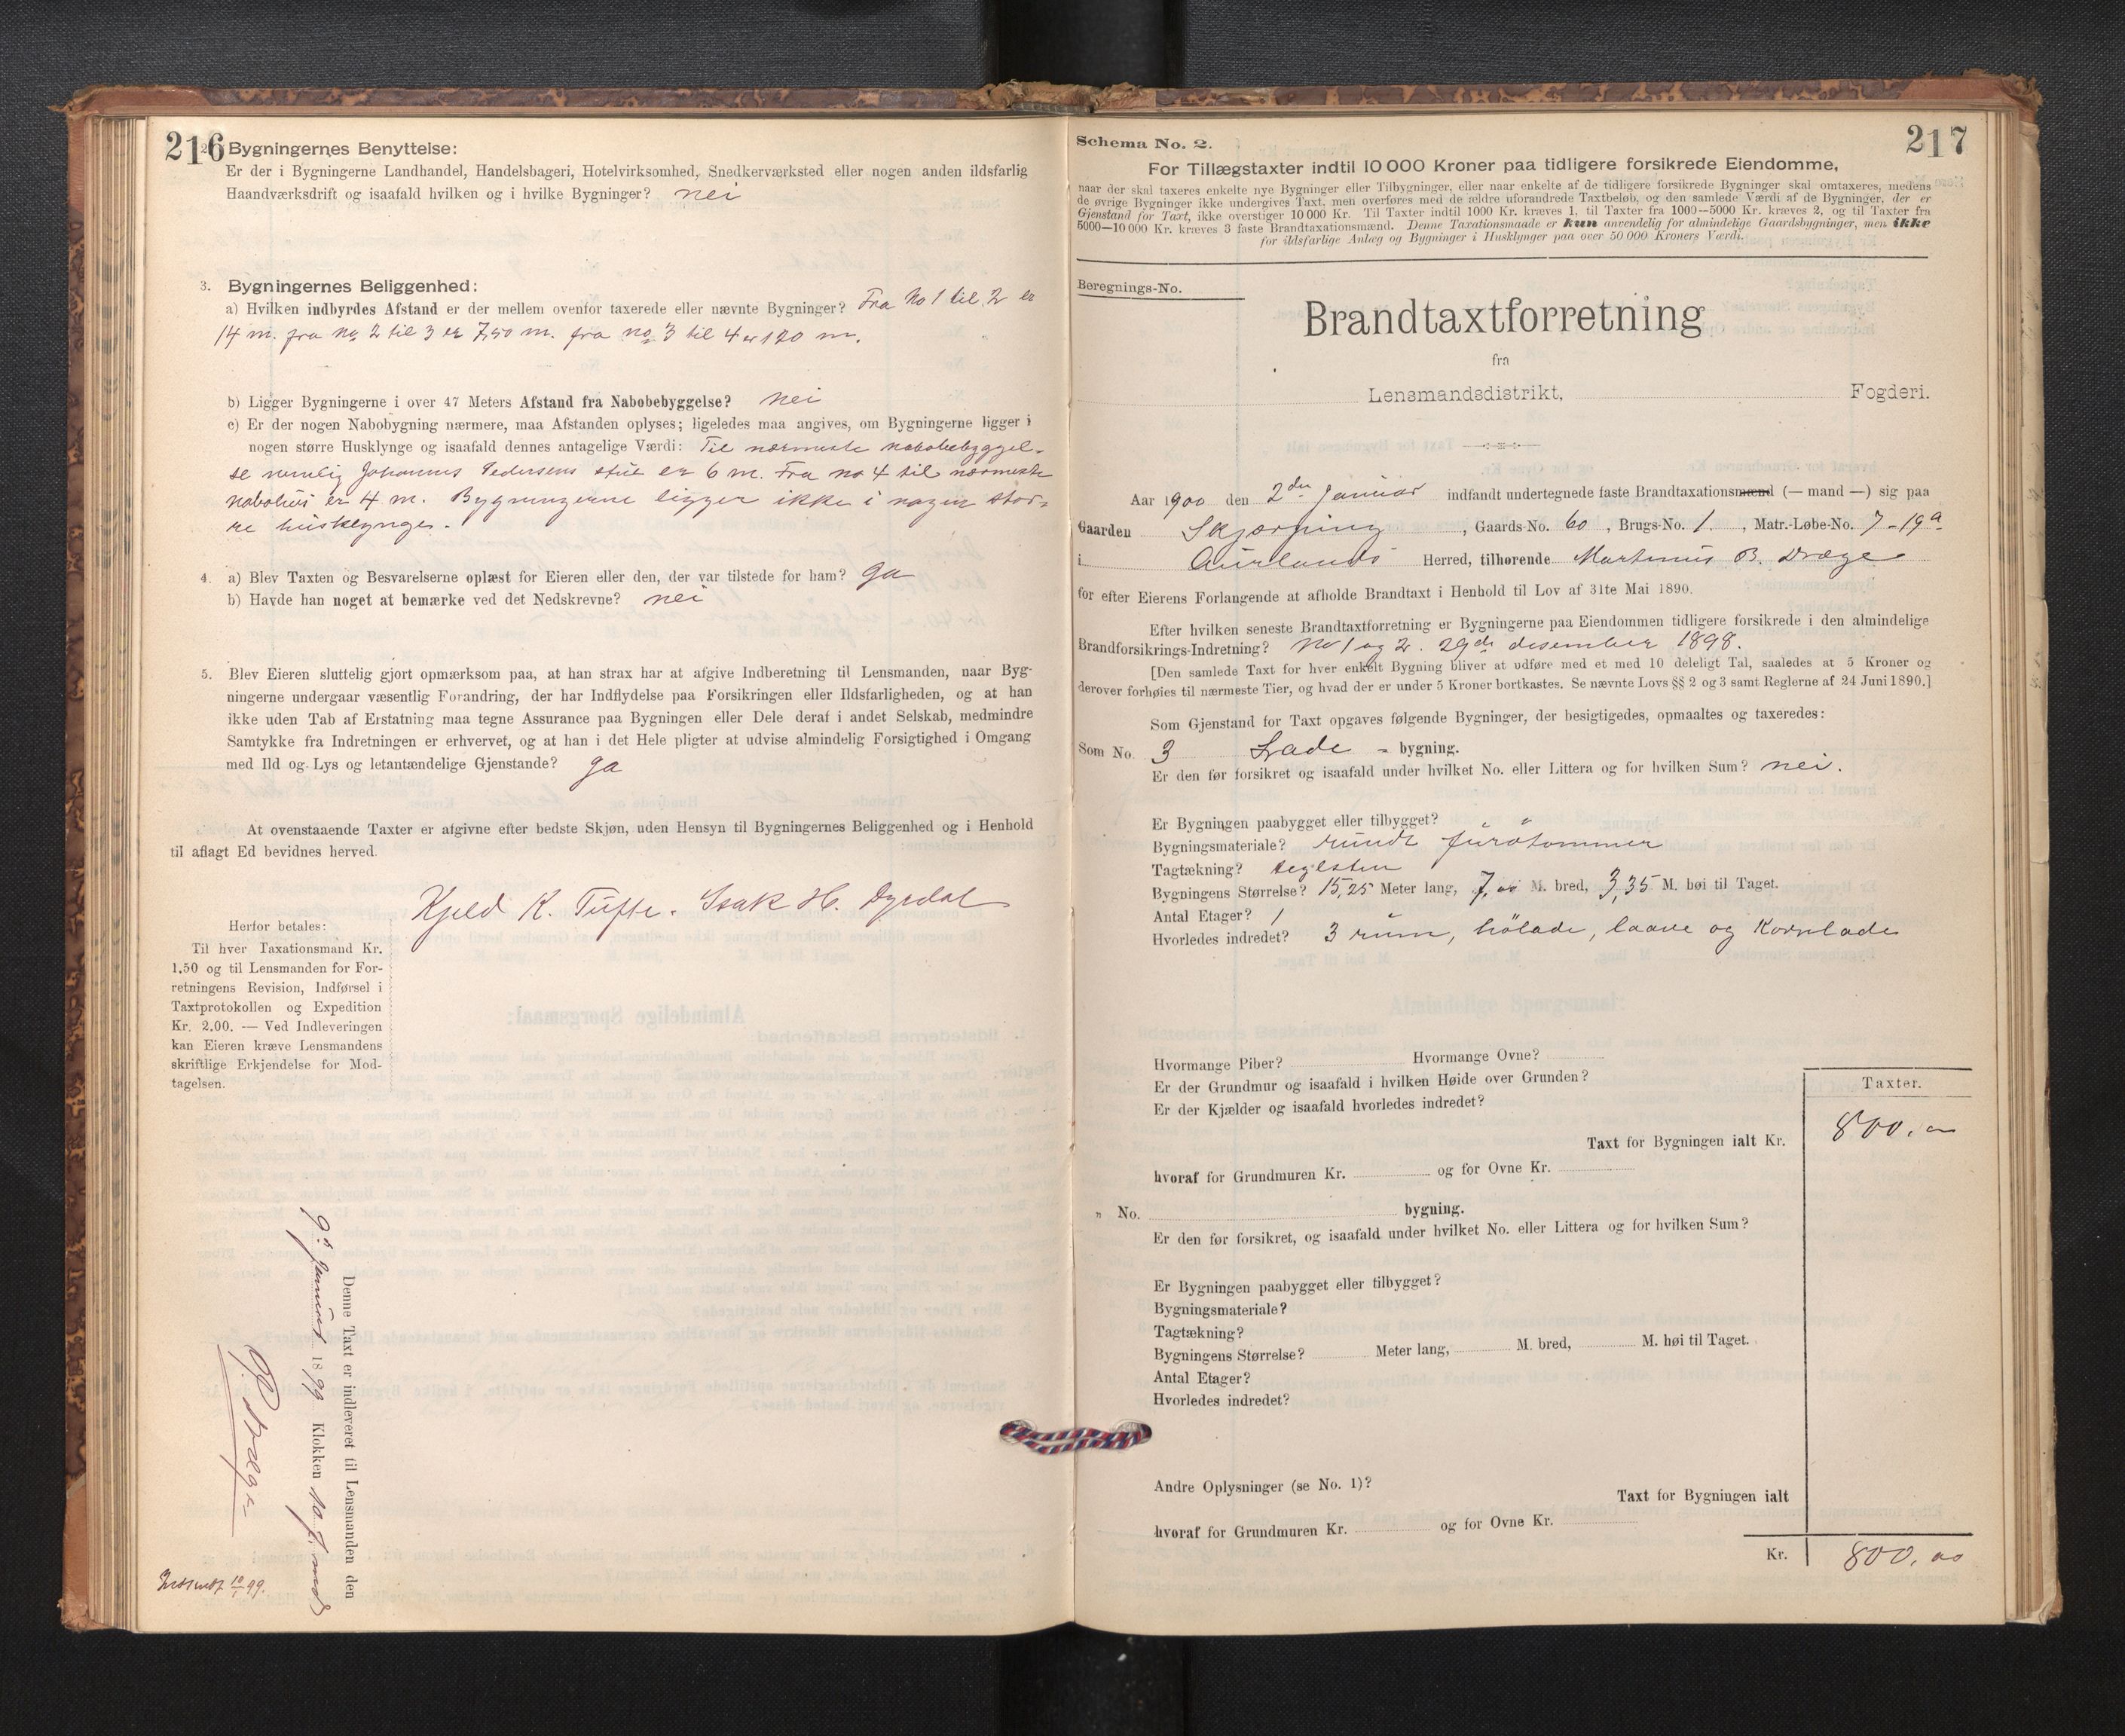 216
Bygningernes Benyttelse:
Er der i Bygningerne Landhandel, Handelsbageri, Hotelvirksomhed, Snedkerværksted eller nogen anden ildsfarlig
Haandværksdrift og isaafald hvilken og i hvilke Bygninger? nei
3. Bygningernes Beliggenhed:
a) Hvilken indbyrdes Afstand er der mellem ovenfor taxerede eller nævnte Bygninger? Fra No 1 til 2 er
14 m. fra no 2 til 3 er 7,50 m. fra no 3 til 4 er 120 m.
b) Ligger Bygningerne i over 47 Meters Afstand fra Nabobebyggelse? nei
c) Er der nogen Nabobygning nærmere, maa Afstanden oplyses; ligeledes maa angives, om Bygningerne ligger i
nogen større Husklynge og isaafald dennes antagelige Værdi: Til nærmeste nabobebyggel-
se nemlig Johannes Pedersens stue er 6 m. Fra no 4 til nærmeste
nabohus er 4 m. Bygningerne ligger ikke i nogen stør-
re husklynge.
4. a) Blev Taxten og Besvarelserne oplæst for Eieren eller den, der var tilstede for ham? ja
b) Havde han noget at bemærke ved det Nedskrevne? nei
5. Blev Eieren sluttelig gjort opmærksom paa, at han strax har at afgive Indberetning til Lensmanden, naar Byg-
ningerne undergaar væsentlig Forandring, der har Indflydelse paa Forsikringen eller Ildsfarligheden, og at han
ikke uden Tab af Erstatning maa tegne Assurance paa Bygningen eller Dele deraf i andet Selskab, medmindre
Samtykke fra Indretningen er erhvervet, og at han i det Hele pligter at udvise almindelig Forsigtighed i Omgang
med Ild og Lys og letantændelige Gjenstande? ja
At ovenstaaende Taxter er afgivne efter bedste Skjøn, uden Hensyn til Bygningernes Beliggenhed og i Henhold
til aflagt Ed bevidnes herved.
Kjeld K. Tufte. Isak H. Dyrdal
Herfor betales:
Til hver Taxationsmand Kr.
1.50 og til Lensmanden for For-
retningens Revision, Indførsel i
Taxtprotokollen og Expedition
Kr. 2.00. — Ved Indleveringen
kan Eieren kræve Lensmandens
skriftlige Erkjendelse for Mod-
tagelsen.
Denne Taxt er indleveret til Lensmanden den
9de Januar 1899 Klokken 10 f. md
Indsendt 10/1 99.
217
Schema No. 2.
For Tillægstaxter indtil 10 000 Kroner paa tidligere forsikrede Eiendomme,
naar der skal taxeres enkelte nye Bygninger eller Tilbygninger, eller naar enkelte af de tidligere forsikrede Bygninger skal omtaxeres, medens
de øvrige Bygninger ikke undergives Taxt, men overføres med de ældre uforandrede Taxtbeløb, og den samlede Værdi af de Bygninger, der er
Gjenstand for Taxt, ikke overstiger 10 000 Kr. Til Taxter indtil 1000 Kr. kræves 1, til Taxter fra 1000—5000 Kr. kræves 2, og til Taxter fra
5000—10 000 Kr. kræves 3 faste Brandtaxationsmænd. Denne Taxationsmaade er kun anvendelig for almindelige Gaardsbygninger, men ikke
for ildsfarlige Anlæg og Bygninger i Husklynger paa over 50 000 Kroners Værdi.
Beregnings-No.
Brandtaxtforretning
fra
Lensmandsdistrikt, Fogderi.
Aar 1900 den 2den Januar indfandt undertegnede faste Brandtaxationsmænd (— mand —) sig paa
Gaarden Skjærping, Gaards-No. 60, Brugs-No. 1., Matr.-Løbe-No. 7-19a
i Aurlands Herred, tilhørende Martinus B. Dræge
for efter Eierens Forlangende at afholde Brandtaxt i Henhold til Lov af 31te Mai 1890.
Efter hvilken seneste Brandtaxtforretning er Bygningerne paa Eiendommen tidligere forsikrede i den almindelige
Brandforsikrings-Indretning? No 1 og 2. 29de desember 1898.
[Den samlede Taxt for hver enkelt Bygning bliver at udføre med et med 10 deleligt Tal, saaledes at 5 Kroner og
derover forhøies til nærmeste Tier, og hvad der er under 5 Kroner bortkastes. Se nævnte Lovs §§ 2 og 3 samt Reglerne af 24 Juni 1890.]
Som Gjenstand for Taxt opgaves følgende Bygninger, der besigtigedes, opmaaltes og taxeredes:
Som No. 3 Lade - bygning.
Er den før forsikret og isaafald under hvilket No. eller Littera og for hvilken Sum? nei.
Er Bygningen paabygget eller tilbygget?
Bygningsmateriale? rundt furutømmer
Tagtækning? teglsten
Bygningens Størrelse? 15,25 Meter lang, 7,00 M. bred, 3,35 M. høi til Taget.
Antal Etager? 1
Hvorledes indredet? 3 rum, hölade, laave og Kornlade
Hvormange Piber? Hvormange Ovne?
Er der Grundmur og isaafald i hvilken Høide over Grunden?
Er der Kjælder og isaafald hvorledes indredet?
Taxter.
Taxt for Bygningen ialt Kr. 800,00
hvoraf for Grundmuren Kr. og for Ovne Kr.
„ No. bygning.
Er den før forsikret, og isaafald under hvilket No. eller Littera og for hvilken Sum?
Er Bygningen paabygget eller tilbygget?
Bygningsmateriale?
Tagtækning?
Bygningens Størrelse? Meter lang, M. bred, M. høi til Taget.
Antal Etager?
Hvorledes indredet?
Andre Oplysninger (se No. 1)?
Taxt for Bygningen ialt
hvoraf for Grundmuren Kr. og for Ovne Kr.
Kr. 800,00